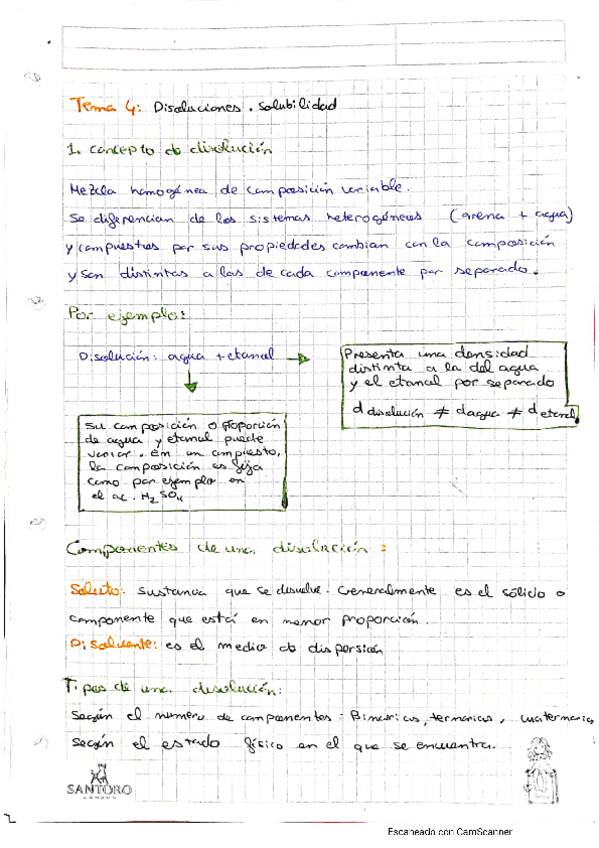 Tema 4: Disoluciones. Solubilidad
1. Concepto de disolución
Mezcla homogénea de composición variable.
Se diferencian de los sistemas heterogéneos (arena + agua)
y compuestos por sus propiedades cambian con la composición
y son distintas a las de cada componente por separado.
Por ejemplo:
Disolución: agua + etanol
Presenta una densidad
distinta a la del agua
y el etanol por separado
d disolución ≠ d agua ≠ d etanol
Su composición o proporción
de agua y etanol puede
variar. En un compuesto,
la composición es fija
como por ejemplo en
el ac. H2SO4
Componentes de una disolución:
Soluto: sustancia que se disuelve. Generalmente es el sólido o
componente que está en menor proporción.
Disolvente: es el medio de dispersión
Tipos de una disolución:
Según el numero de componentes: Binarias, ternarias, cuaternarias
Según el estado físico en el que se encuentra.
SANTORO
LONDON
Escaneado con CamScanner